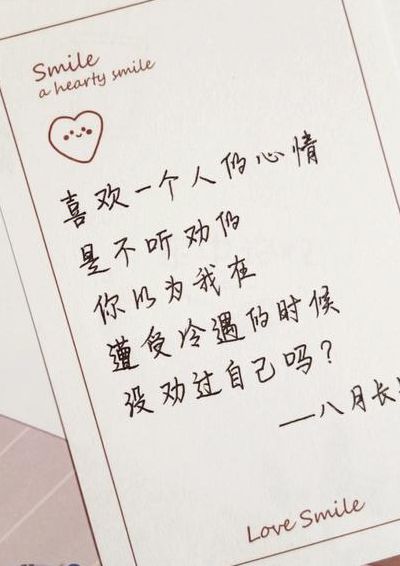 Smile
a hearty smile
喜欢一个人的心情
是不听劝的
你以为我在
遭受冷遇的时候
没劝过自己吗？
——八月长
Love Smile